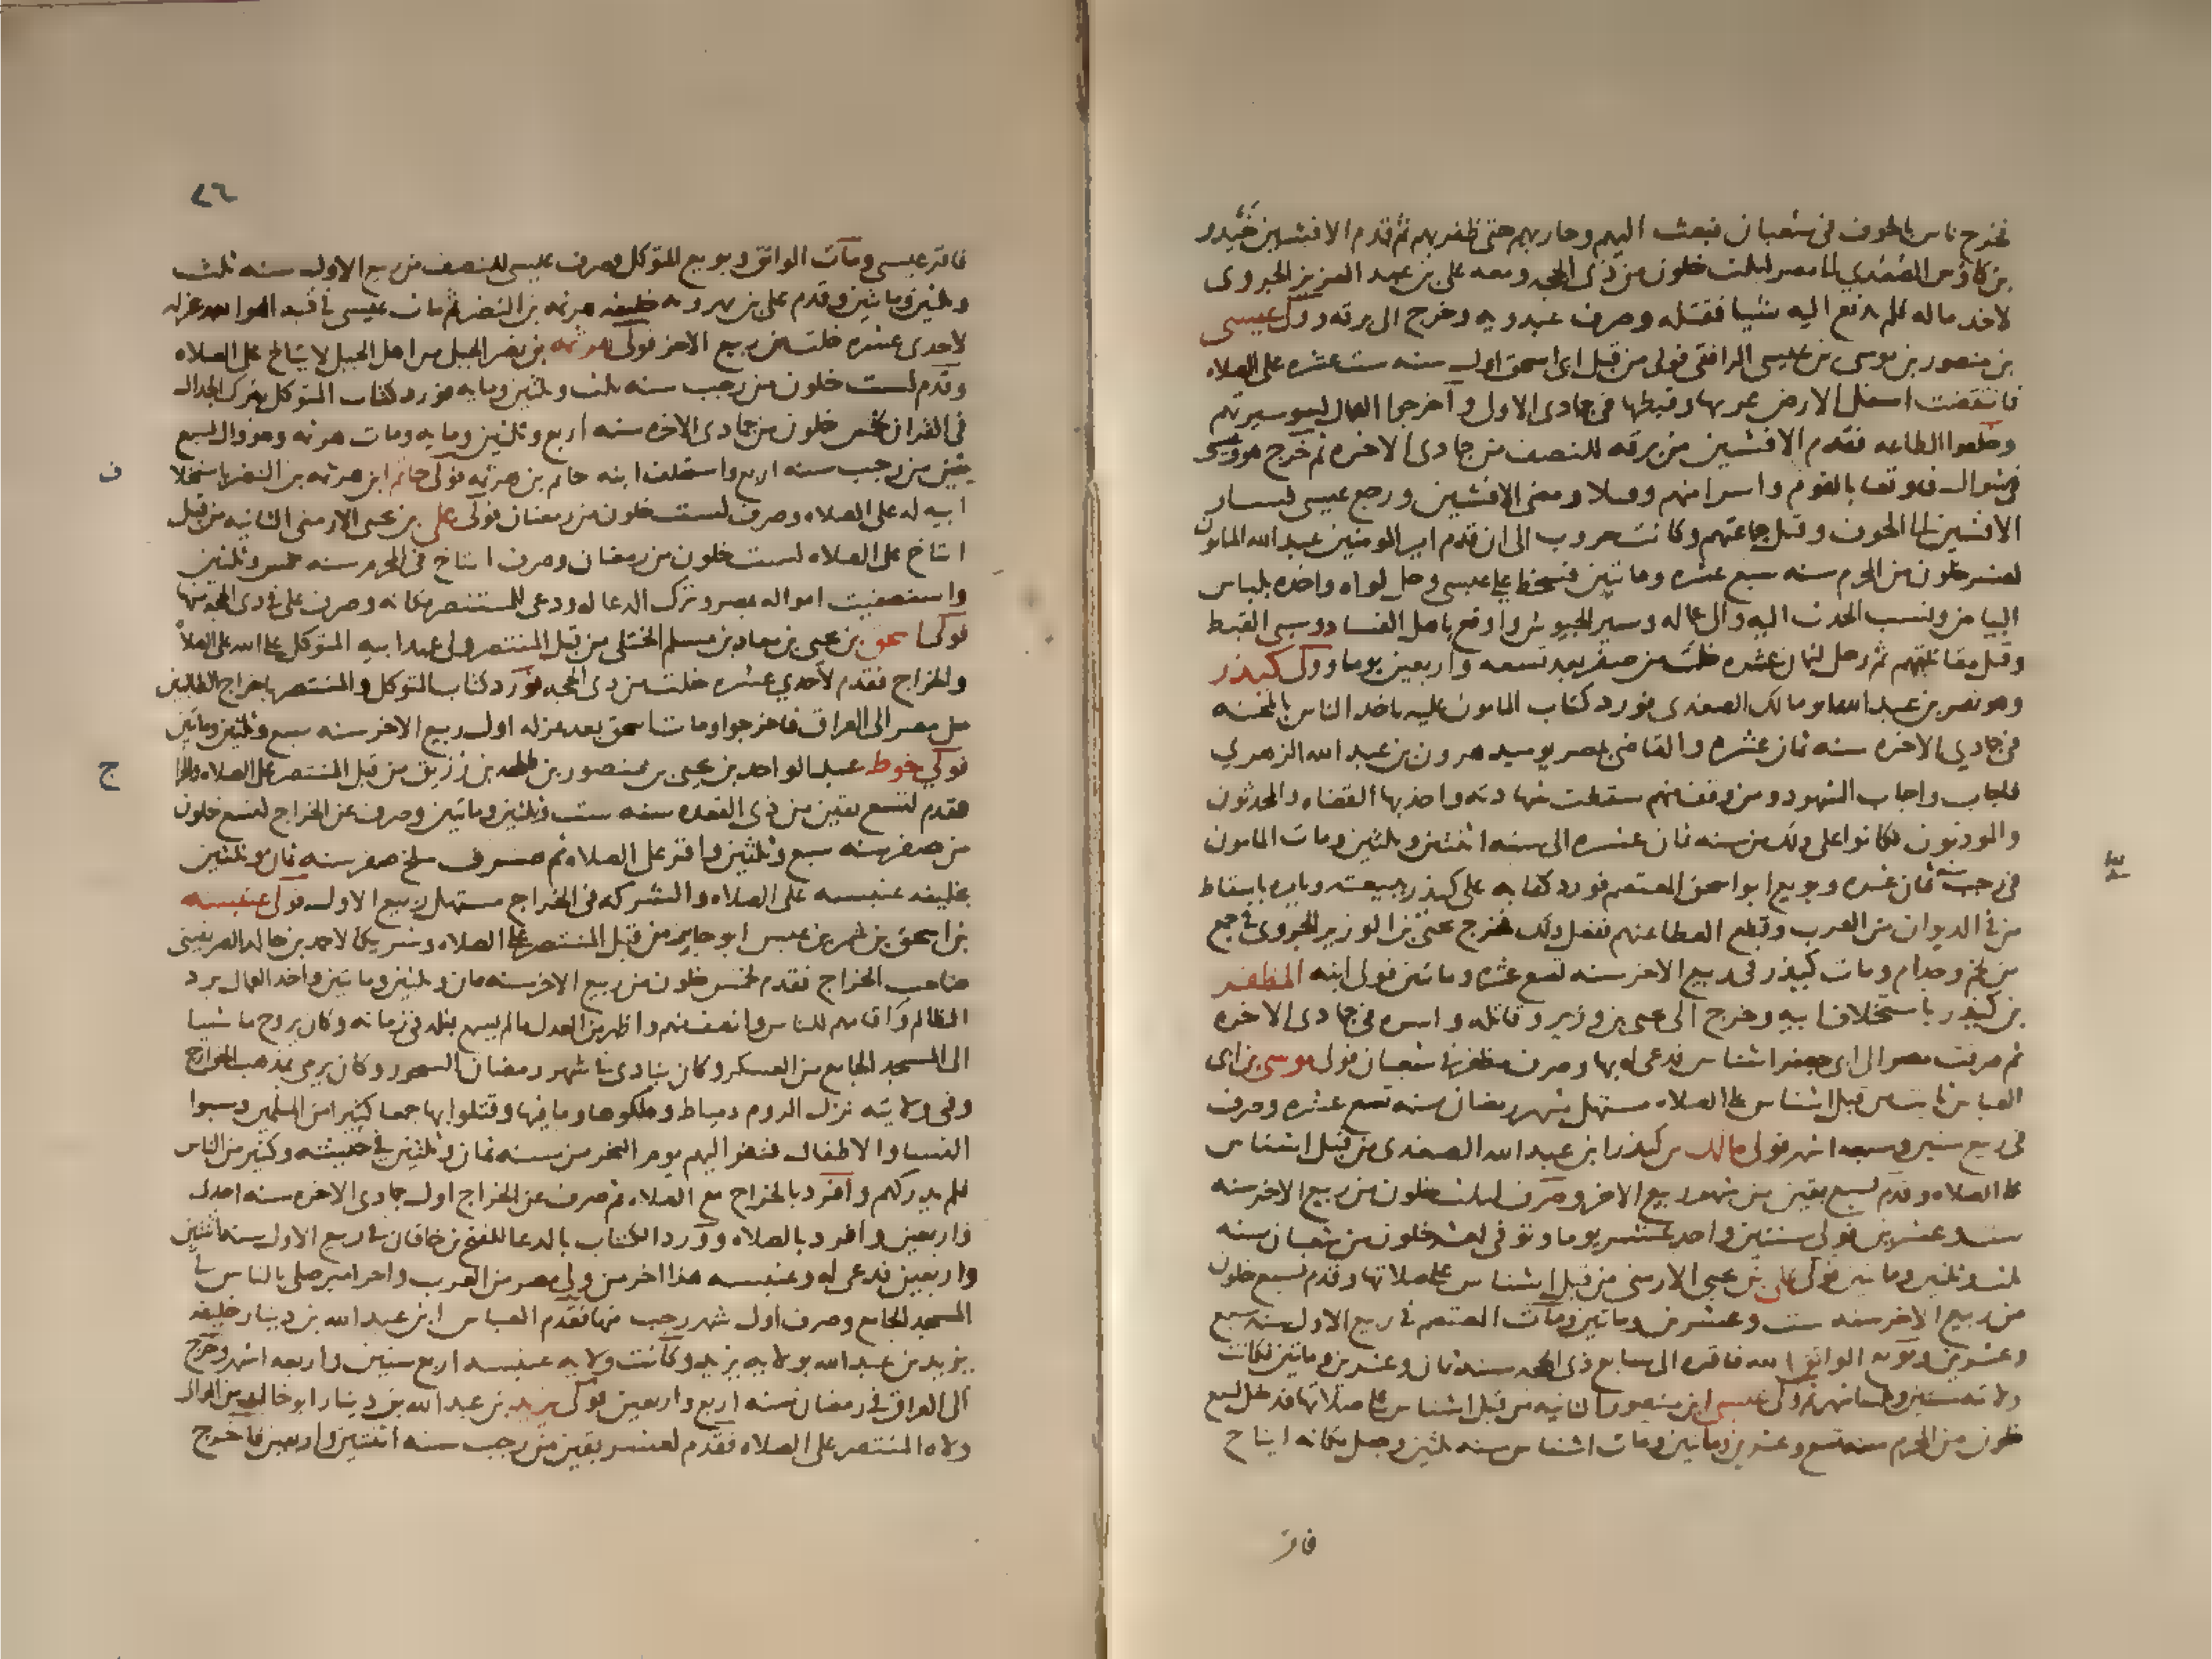 فخرج ناس بالحوف في شعبان فبعث اليهم وحاربهم حتى ظفر بهم ثم قدم الافشين حيدر
بن كاوس الصفدي الى مصر لثلث خلون من ذي الحجه ومعه علي بن عبد العزيز الجروي
لاخذ ماله فلم يدفع اليه شيا فقتله وصرف عبدويه وخرج الى برقه وولي عيسى
بن منصور بن موسى بن عيسى الرافقي فولي من قبل ابي اسحق اول سنه ست عشره على الصلاه
فانتقضت اسفل الارض عربها وقبطها في جمادى الاول واخرجوا العمال لسو سيرتهم
وخلعوا الطاعه فقدم الافشين من برقه للنصف من جمادى الاخره ثم خرج هو وعيسى
في شوال فاوقعا بالقوم واسرا منهم وقتلا ومضى الافشين ورجع عيسى فسار
الافشين الى الحوف وقتل جماعتهم وكانت حروب الى ان قدم امير المومنين عبد الله المامون
لعشر خلون من المحرم سنه سبع عشره وماتين فسخط على عيسى وحل لواه واخذه بلباس
البياض ونسب الحدث اليه والى عماله وسير الجيوش واوقع باهل الفساد وسبى القبط
وقتل مقاتلتهم ثم رحل لثمان عشره خلت من صفر بعد تسعه واربعين يوما وولي كيدر
وهو نصر بن عبد الله ابو مالك الصفدي فورد كتاب المامون عليه باخذ الناس بالمحنه
في جمادي الاخره سنه ثمان عشره والقاضي بمصر يوميد هرون بن عبد الله الزهري
فاجاب واجاب الشهود ومن وقف منهم سقطت شهادته واخذ بها القضاه والمحدثون
والموذنون فكانوا على ذلك من سنه ثمان عشره الى سنه اثنتين وثلثين ومات المامون
في رجب سنة ثمان عشره وبويع ابو اسحق المعتصم فورد كتابه على كيدر ببيعته ويامره باسقاط
من في الديوان من العرب وقطع العطا عنهم ففعل ذلك فخرج يحيى بن الوزير الجروي في جمع
من لخم وجذام ومات كيدر في ربيع الاخر سنه تسع عشره وماتين فولي ابنه المظفر
بن كيدر باستخلاف ابيه وخرج الى يحيى بن وزير وقاتله واسره في جمادى الاخره
ثم صرفت مصر الى ابي جعفر اشناس فدعي له بها وصرف مظفر في شعبان فولي موسى بن ابي
العباس ثابت من قبل اشناس على الصلاه مستهل شهر رمضان سنه تسع عشره وصرف
في ربيع سنين وسبعه اشهر فولي مالك بن كيدر ابن عبد الله الصفدي من قبل اشناس
على الصلاه وقدم لسبع بقين من شهر ربيع الاخر وصرف لثلث خلون من ربيع الاخر سنه
ست وعشرين فولي سنتين واحد عشر يوما وتوفي لعشر خلون من شعبان سنه
ثلث وثلثين وماتين فولي علي بن يحيى الارمني من قبل اشناس على صلاتها وقدم لسبع خلون
من ربيع الاخر سنه ست وعشرين وماتين ومات المعتصم في ربيع الاول سنه سبع
وعشرين وبويع الواثق بالله فاقره الى سابع ذي الحجه سنه ثمان وعشرين وماتين فكانت
ولايته سنتين وثلثه اشهر وولي عيسى ابن منصور الثانيه من قبل اشناس على صلاتها فدخل لسبع
خلون من المحرم سنه تسع وعشرين وماتين ومات اشناس سنه ثلثين وجعل مكانه ايتاخ
فاقر
٢٦
فاقر عيسى ومات الواثق وبويع المتوكل وصرف عيسى للنصف من ربيع الاول سنه ثلث
وثلثين وماتين وقدم علي بن مهرويه خليفه هرثمه بن النضر ثم مات عيسى في قبه الهوا بعد عزله
لاحدى عشره خلت من ربيع الاخر فولي هرثمه بن نضر الجبلي من اهل الجبل لايتاخ على الصلاه
وقدم لست خلون من رجب سنه ثلث وثلثين ومايه فورد كتاب المتوكل بترك الجدال
في القران لخمس خلون من جمادى الاخره سنه اربع وثلثين ومايه ومات هرثمه وهو وال لسبع
بقين من رجب سنه اربع واستخلف ابنه حاتم بن هرثمه فولي حاتم ابن هرثمه بن النضر باستخلاف
ابيه له على الصلاه وصرف لست خلون من رمضان فولي علي بن يحيى الارمني الثانيه من قبل
ايتاخ على الصلاه لست خلون من رمضان وصرف ايتاخ في المحرم سنه خمس وثلثين
واستصفيت امواله بمصر وترك الدعا له ودعي للمنتصر مكانه وصرف علي في ذي الحجه منها
فولي اسحق بن يحيى بن معاد بن مسلم الختلي من قبل المنتصر ولي عهد ابيه المتوكل على الله على الصلاه
والخراج فقدم لاحدي عشره خلت من ذي الحجه فورد كتاب المتوكل والمنتصر باخراج الطالبيين
من مصر الى العراق فاخرجوا ومات اسحق بعد عزله اول ربيع الاخر سنه سبع وثلثين وماتين
فولي خوط عبد الواحد بن يحيى بن منصور بن طلحه بن زريق من قبل المنتصر على الصلاه والخراج
فقدم لتسع بقين من ذي القعده سنه ست وثلثين وماتين وصرف عن الخراج لتسع خلون
من صفر سنه سبع وثلثين واقر على الصلاه ثم صرف سلخ صفر سنه ثمان وثلثين
بخليفه عنبسه على الصلاه والشركه في الخراج مستهل ربيع الاول فولي عنبسه
بن اسحق بن شمر بن عبس ابو جابر من قبل المنتصر على الصلاه وشريكا لاحمد بن خالد الصريفيني
صاحب الخراج فقدم لخمس خلون من ربيع الاخر سنه ثمان وثلثين وماتين واخذ العمال برد
المظالم واقامهم للناس وانصف منهم واظهر من العدل ما لم يسمع بمثله في زمانه وكان يروح ماشيا
الى المسجد الجامع من العسكر وكان ينادي في شهر رمضان السحور وكان يرمى بمذهب الخوارج
وفي ولايته نزل الروم دمياط وملكوها وما فيها وقتلوا بها جمعا كثيرا من المسلمين وسبوا
النسا والاطفال فنفر اليهم يوم النحر من سنه ثمان وثلثين في جيشه وكثير من الناس
فلم يدركهم وافرد بالخراج مع الصلاه ثم صرف عن الخراج اول جمادى الاخره سنه احدى
واربعين وافرد بالصلاه وورد الكتاب بالدعا للفتح بن خاقان في ربيع الاول سنه اثنتين
واربعين فدعي له وعنبسه هذا اخر من ولي مصر من العرب واخر امير صلى بالناس في
المسجد الجامع وصرف اول شهر رجب منها فقدم العباس ابن عبد الله بن دينار خليفه
يزيد بن عبد الله بولايه يزيد وكانت ولايه عنبسه اربع سنين واربعه اشهر وخرج
الى العراق في رمضان سنه اربع واربعين فولي يزيد بن عبد الله بن دينار ابو خالد من الموالي
ولاه المنتصر على الصلاه فقدم لعشر بقين من رجب سنه اثنتين واربعين فاخرج
ف
ج